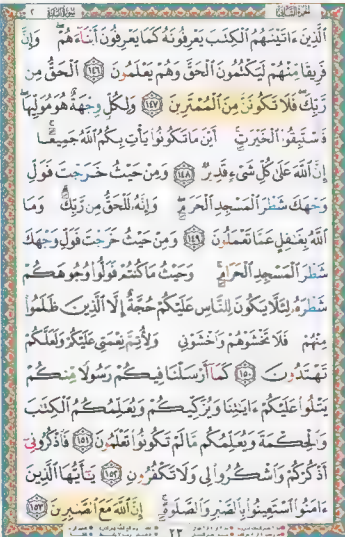 الَّذِينَ ءَاتَيْنَٰهُمُ الْكِتَٰبَ يَعْرِفُونَهُ كَمَا يَعْرِفُونَ أَبْنَاءَهُمْ وَإِنَّ
فَرِيقًا مِنْهُمْ لَيَكْتُمُونَ الْحَقَّ وَهُمْ يَعْلَمُونَ ١٤٦ الْحَقُّ مِن
رَبِّكَ فَلَا تَكُونَنَّ مِنَ الْمُمْتَرِينَ ١٤٧ وَلِكُلٍّ وِجْهَةٌ هُوَ مُوَلِّيهَا
فَاسْتَبِقُوا الْخَيْرَٰتِ أَيْنَ مَا تَكُونُوا يَأْتِ بِكُمُ اللَّهُ جَمِيعًا
إِنَّ اللَّهَ عَلَىٰ كُلِّ شَيْءٍ قَدِيرٌ ١٤٨ وَمِنْ حَيْثُ خَرَجْتَ فَوَلِّ
وَجْهَكَ شَطْرَ الْمَسْجِدِ الْحَرَامِ وَإِنَّهُ لَلْحَقُّ مِن رَبِّكَ وَمَا
اللَّهُ بِغَٰفِلٍ عَمَّا تَعْمَلُونَ ١٤٩ وَمِنْ حَيْثُ خَرَجْتَ فَوَلِّ وَجْهَكَ
شَطْرَ الْمَسْجِدِ الْحَرَامِ وَحَيْثُ مَا كُنتُمْ فَوَلُّوا وُجُوهَكُمْ
شَطْرَهُ لِئَلَّا يَكُونَ لِلنَّاسِ عَلَيْكُمْ حُجَّةٌ إِلَّا الَّذِينَ ظَلَمُوا
مِنْهُمْ فَلَا تَخْشَوْهُمْ وَاخْشَوْنِي وَلِأُتِمَّ نِعْمَتِي عَلَيْكُمْ وَلَعَلَّكُمْ
تَهْتَدُونَ ١٥٠ كَمَا أَرْسَلْنَا فِيكُمْ رَسُولًا مِنكُمْ
يَتْلُوا عَلَيْكُمْ ءَايَٰتِنَا وَيُزَكِّيكُمْ وَيُعَلِّمُكُمُ الْكِتَٰبَ
وَالْحِكْمَةَ وَيُعَلِّمُكُم مَا لَمْ تَكُونُوا تَعْلَمُونَ ١٥١ فَاذْكُرُونِي
أَذْكُرْكُمْ وَاشْكُرُوا لِي وَلَا تَكْفُرُونِ ١٥٢ يَٰأَيُّهَا الَّذِينَ
ءَامَنُوا اسْتَعِينُوا بِالصَّبْرِ وَالصَّلَوٰةِ إِنَّ اللَّهَ مَعَ الصَّٰبِرِينَ ١٥٣
٢٣